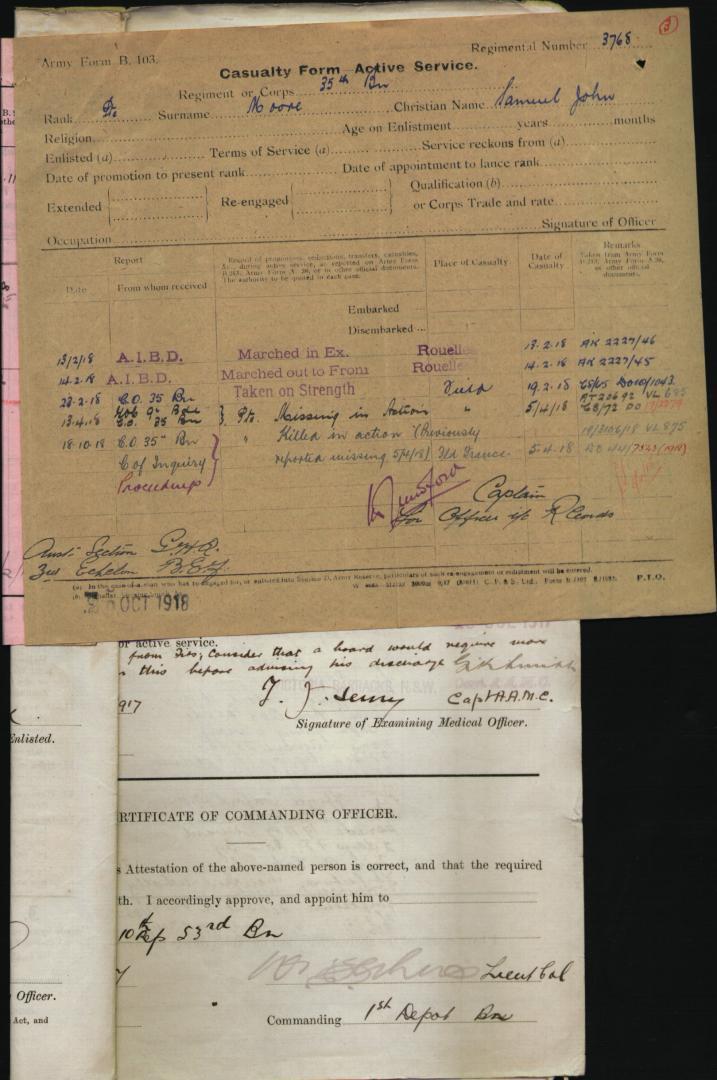 3
Army Form B. 103.
Regimental Number 3768
Casualty Form—Active Service.
Regiment or Corps 35th Bn
Rank Pte Surname Moore Christian Name Samuel John
Religion Age on Enlistment years months
Enlisted (a) Terms of Service (a) Service reckons from (a)
Date of promotion to present rank Date of appointment to lance rank
Extended Re-engaged Qualification (b)
or Corps Trade and rate
Signature of Officer
Occupation
Report
Date From whom received
Record of promotions, reductions, transfers, casualties, &c., during active service, as reported on Army Form B.213, Army Form A. 36, or in other official documents. The authority to be quoted in each case.
Place of Casualty
Date of Casualty
Remarks
Taken from Army Form B.213, Army Form A.36, or other official documents.
Embarked
Disembarked ...
13/2/18 A.I.B.D. Marched in Ex. Rouelles 13.2.18 AK 2227/46
14.2.18 A.I.B.D. Marched out to From Rouelles 14.2.18 AK 2227/45
23.2.18 C.O. 35 Bn Taken on Strength Field 19.2.18
13.4.18 C.O. 35 Bn Missing in Action " 5/4/18
18-10-18 C.O. 35" Bn " Killed in action (Previously
C of Inquiry reported missing 5/4/18) Fld France 5.4.18
Proceedings
Captain
for Officer i/c Records
Aust. Section G.H.Q.
3rd Echelon B.E.F.
P.T.O.
OCT 1918
or active service.
from fits; consider that a board would require more
this before advising his discharge
VICTORIA BARRACKS, N.S.W.
917
Capt A.A.M.C.
Signature of Examining Medical Officer.
Enlisted.
RTIFICATE OF COMMANDING OFFICER.
s Attestation of the above-named person is correct, and that the required
th. I accordingly approve, and appoint him to
10th Rep 53rd Bn
Lieut Col
Officer.
Act, and
Commanding 1st Depot Bn